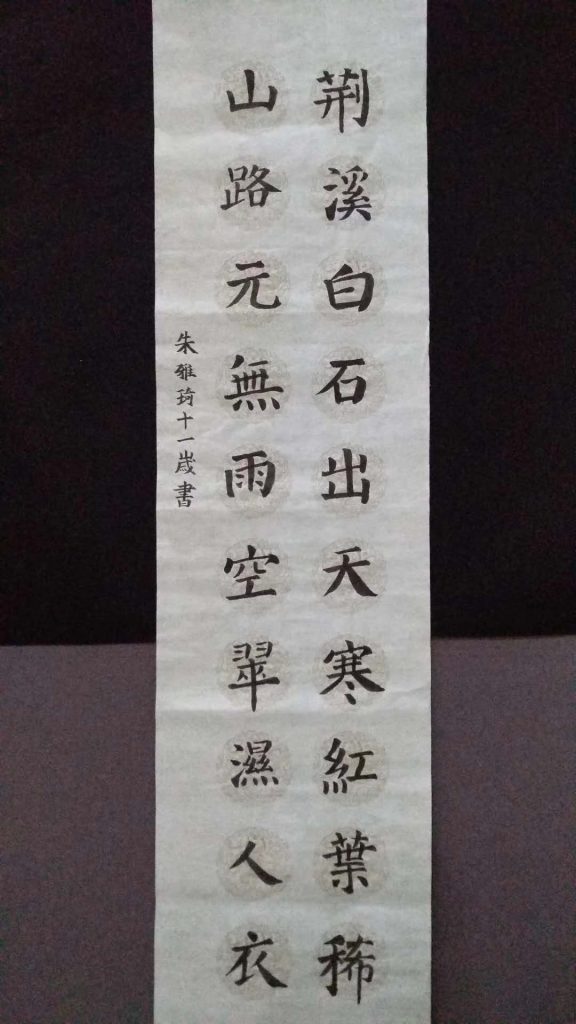 荆溪白石出天寒紅葉稀
山路元無雨空翠濕人衣
朱雅琦十一歲書